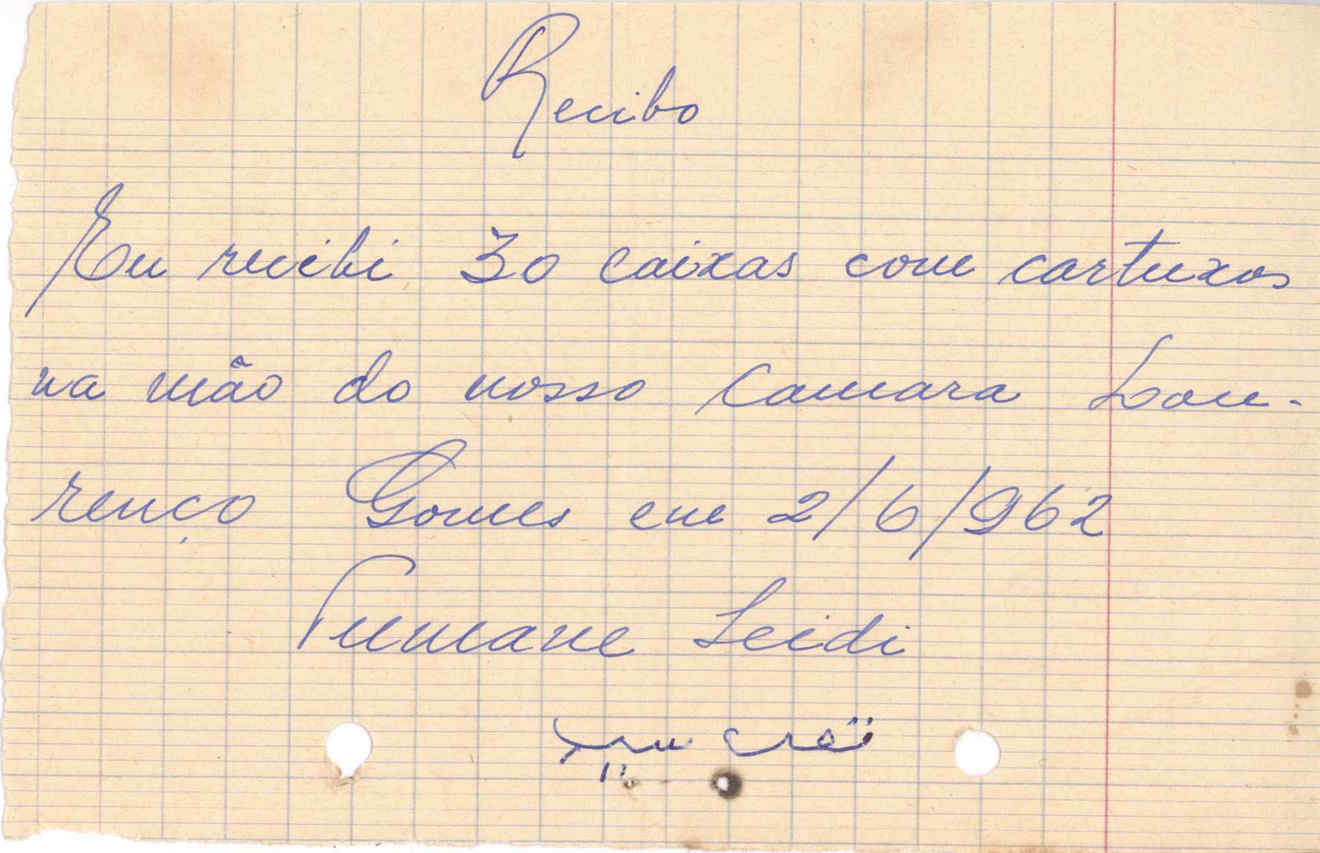 Recibo
Eu recibi 30 caixas com cartuxos
na mão do nosso Camara Lou-
renço Gomes em 2/6/962
Tumane Seidi